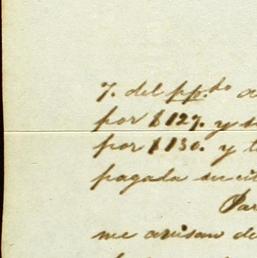 7. del pp.do
por $127. y
por $130. y
pagada su
Par
me avisan de